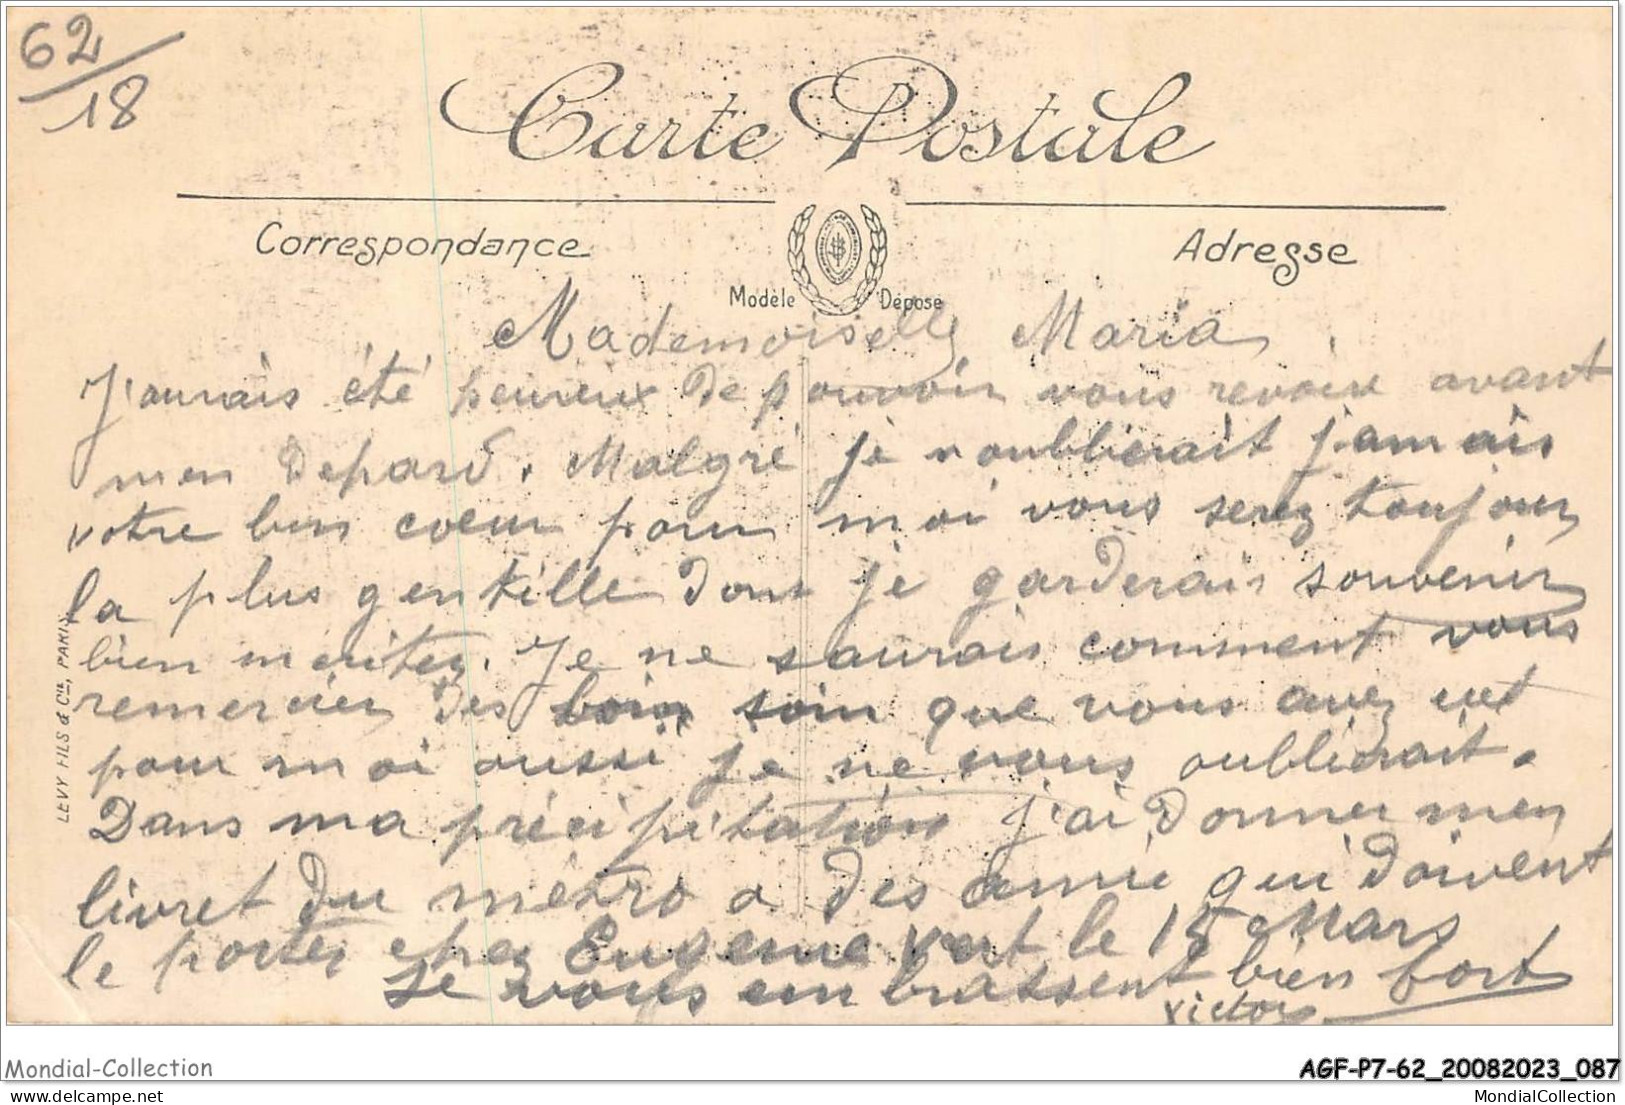 62
/18
Carte Postale
Correspondance
Adresse
Modèle Déposé
Mademoiselle Maria
J'aurais été heureux de pouvoir vous revoire avant
mon Depard. Malgré je noublierait jamais
votre bon coeur pour moi vous serez toujour
la plus gentille dont je garderais souvenir
bien meritez. Je ne saurais comment vous
remercier des bon soin que vous avez eut
pour moi aussi je ne vous oublierait.
Dans ma précipitation j'ai donner mon
livret du métro a des amie qui doivent
le porter chez Eugenne Vert le 15 Mars
Je vous embrassent bien fort
Victor
LEVY FILS & Cie, PARIS
Mondial-Collection
AGF-P7-62_20082023_087
delcampe.net
MondialCollection